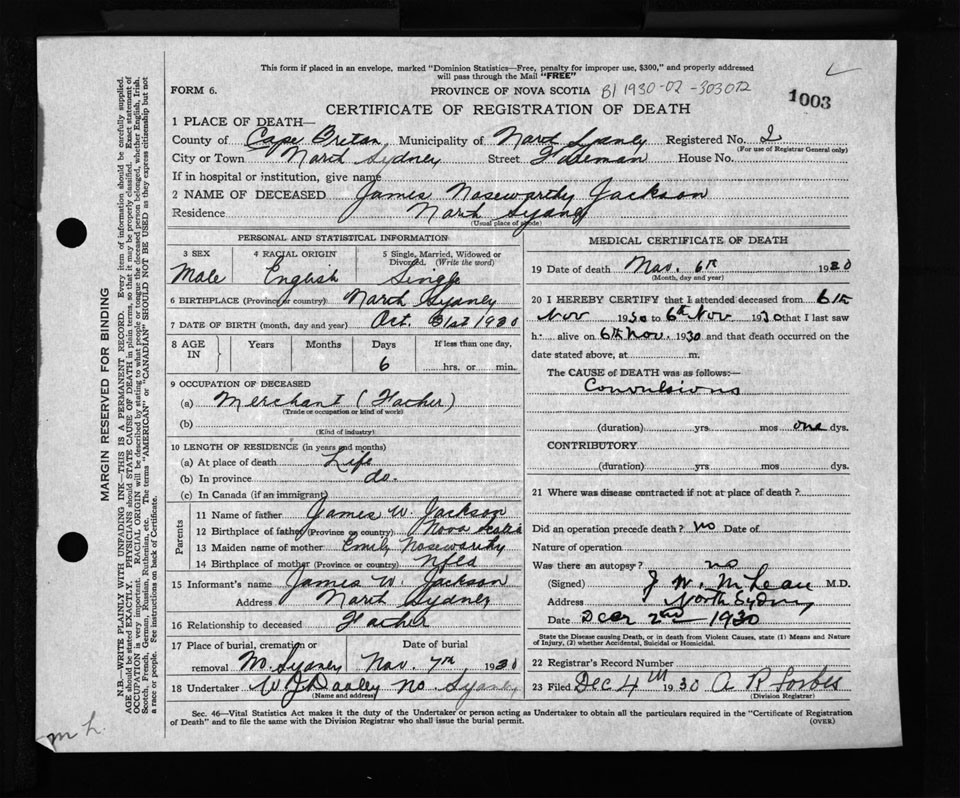 This form if placed in an envelope, marked "Dominion Statistics—Free, penalty for improper use, $300," and properly addressed
will pass through the Mail "FREE"
FORM 6. PROVINCE OF NOVA SCOTIA B1 1930-02-303072
1003
CERTIFICATE OF REGISTRATION OF DEATH
1 PLACE OF DEATH—
County of Cape Breton Municipality of North Sydney Registered No. 2
(For use of Registrar General only)
City or Town North Sydney Street House No.
If in hospital or institution, give name
2 NAME OF DECEASED James Noseworthy Jackson
Residence North Sydney
(Usual place of abode)
PERSONAL AND STATISTICAL INFORMATION
3 SEX 4 RACIAL ORIGIN 5 Single, Married, Widowed or
Divorced. (Write the word)
Male English Single
6 BIRTHPLACE (Province or country) North Sydney
7 DATE OF BIRTH (month, day and year) Oct. 31st 1930
8 AGE IN Years Months Days If less than one day,
6 hrs. or min.
9 OCCUPATION OF DECEASED
(a) Merchant (Father)
(Trade or occupation or kind of work)
(b)
(Kind of industry)
10 LENGTH OF RESIDENCE (in years and months)
(a) At place of death Life
(b) In province do.
(c) In Canada (if an immigrant)
Parents
11 Name of father James W. Jackson
12 Birthplace of father (Province or country) Nova Scotia
13 Maiden name of mother Emily Noseworthy
14 Birthplace of mother (Province or country) Nfld
15 Informant's name James W. Jackson
Address North Sydney
16 Relationship to deceased Father
17 Place of burial, cremation or Date of burial
removal No. Sydney Nov. 7th, 1930
18 Undertaker W J Dooley No Sydney
(Name and address)
MEDICAL CERTIFICATE OF DEATH
19 Date of death Nov. 6th 1930
(Month, day and year)
20 I HEREBY CERTIFY that I attended deceased from 6th
Nov 1930 to 6th Nov 1930 that I last saw
h. alive on 6th Nov. 1930 and that death occurred on the
date stated above, at m.
The CAUSE of DEATH was as follows:—
Convulsions
(duration) yrs. mos one dys.
CONTRIBUTORY
(duration) yrs. mos dys.
21 Where was disease contracted if not at place of death?
Did an operation precede death? no Date of
Nature of operation
Was there an autopsy? no
(Signed) J. W. McLean M.D.
Address North Sydney
Date Decr 2nd 1930
State the Disease causing Death, or in death from Violent Causes, state (1) Means and Nature
of Injury, (2) whether Accidental, Suicidal or Homicidal.
22 Registrar's Record Number
23 Filed Dec 4th 1930 A R Forbes
(Division Registrar)
Sec. 46—Vital Statistics Act makes it the duty of the Undertaker or person acting as Undertaker to obtain all the particulars required in the "Certificate of Registration
of Death" and to file the same with the Division Registrar who shall issue the burial permit. (OVER)
MARGIN RESERVED FOR BINDING
N.B.—WRITE PLAINLY WITH UNFADING INK—THIS IS A PERMANENT RECORD. Every item of information should be carefully supplied.
AGE should be stated EXACTLY. PHYSICIANS should STATE CAUSE OF DEATH in plain terms, so that it may be properly classified. Exact statement of
OCCUPATION is very important. RACIAL ORIGIN will be described by stating to what people or tongue the deceased person belonged, whether English, Irish,
Scotch, French, German, Russian, Ruthenian, etc. The terms "AMERICAN" or "CANADIAN" SHOULD NOT BE USED as they express citizenship but not
a race or people. See instructions on back of Certificate.